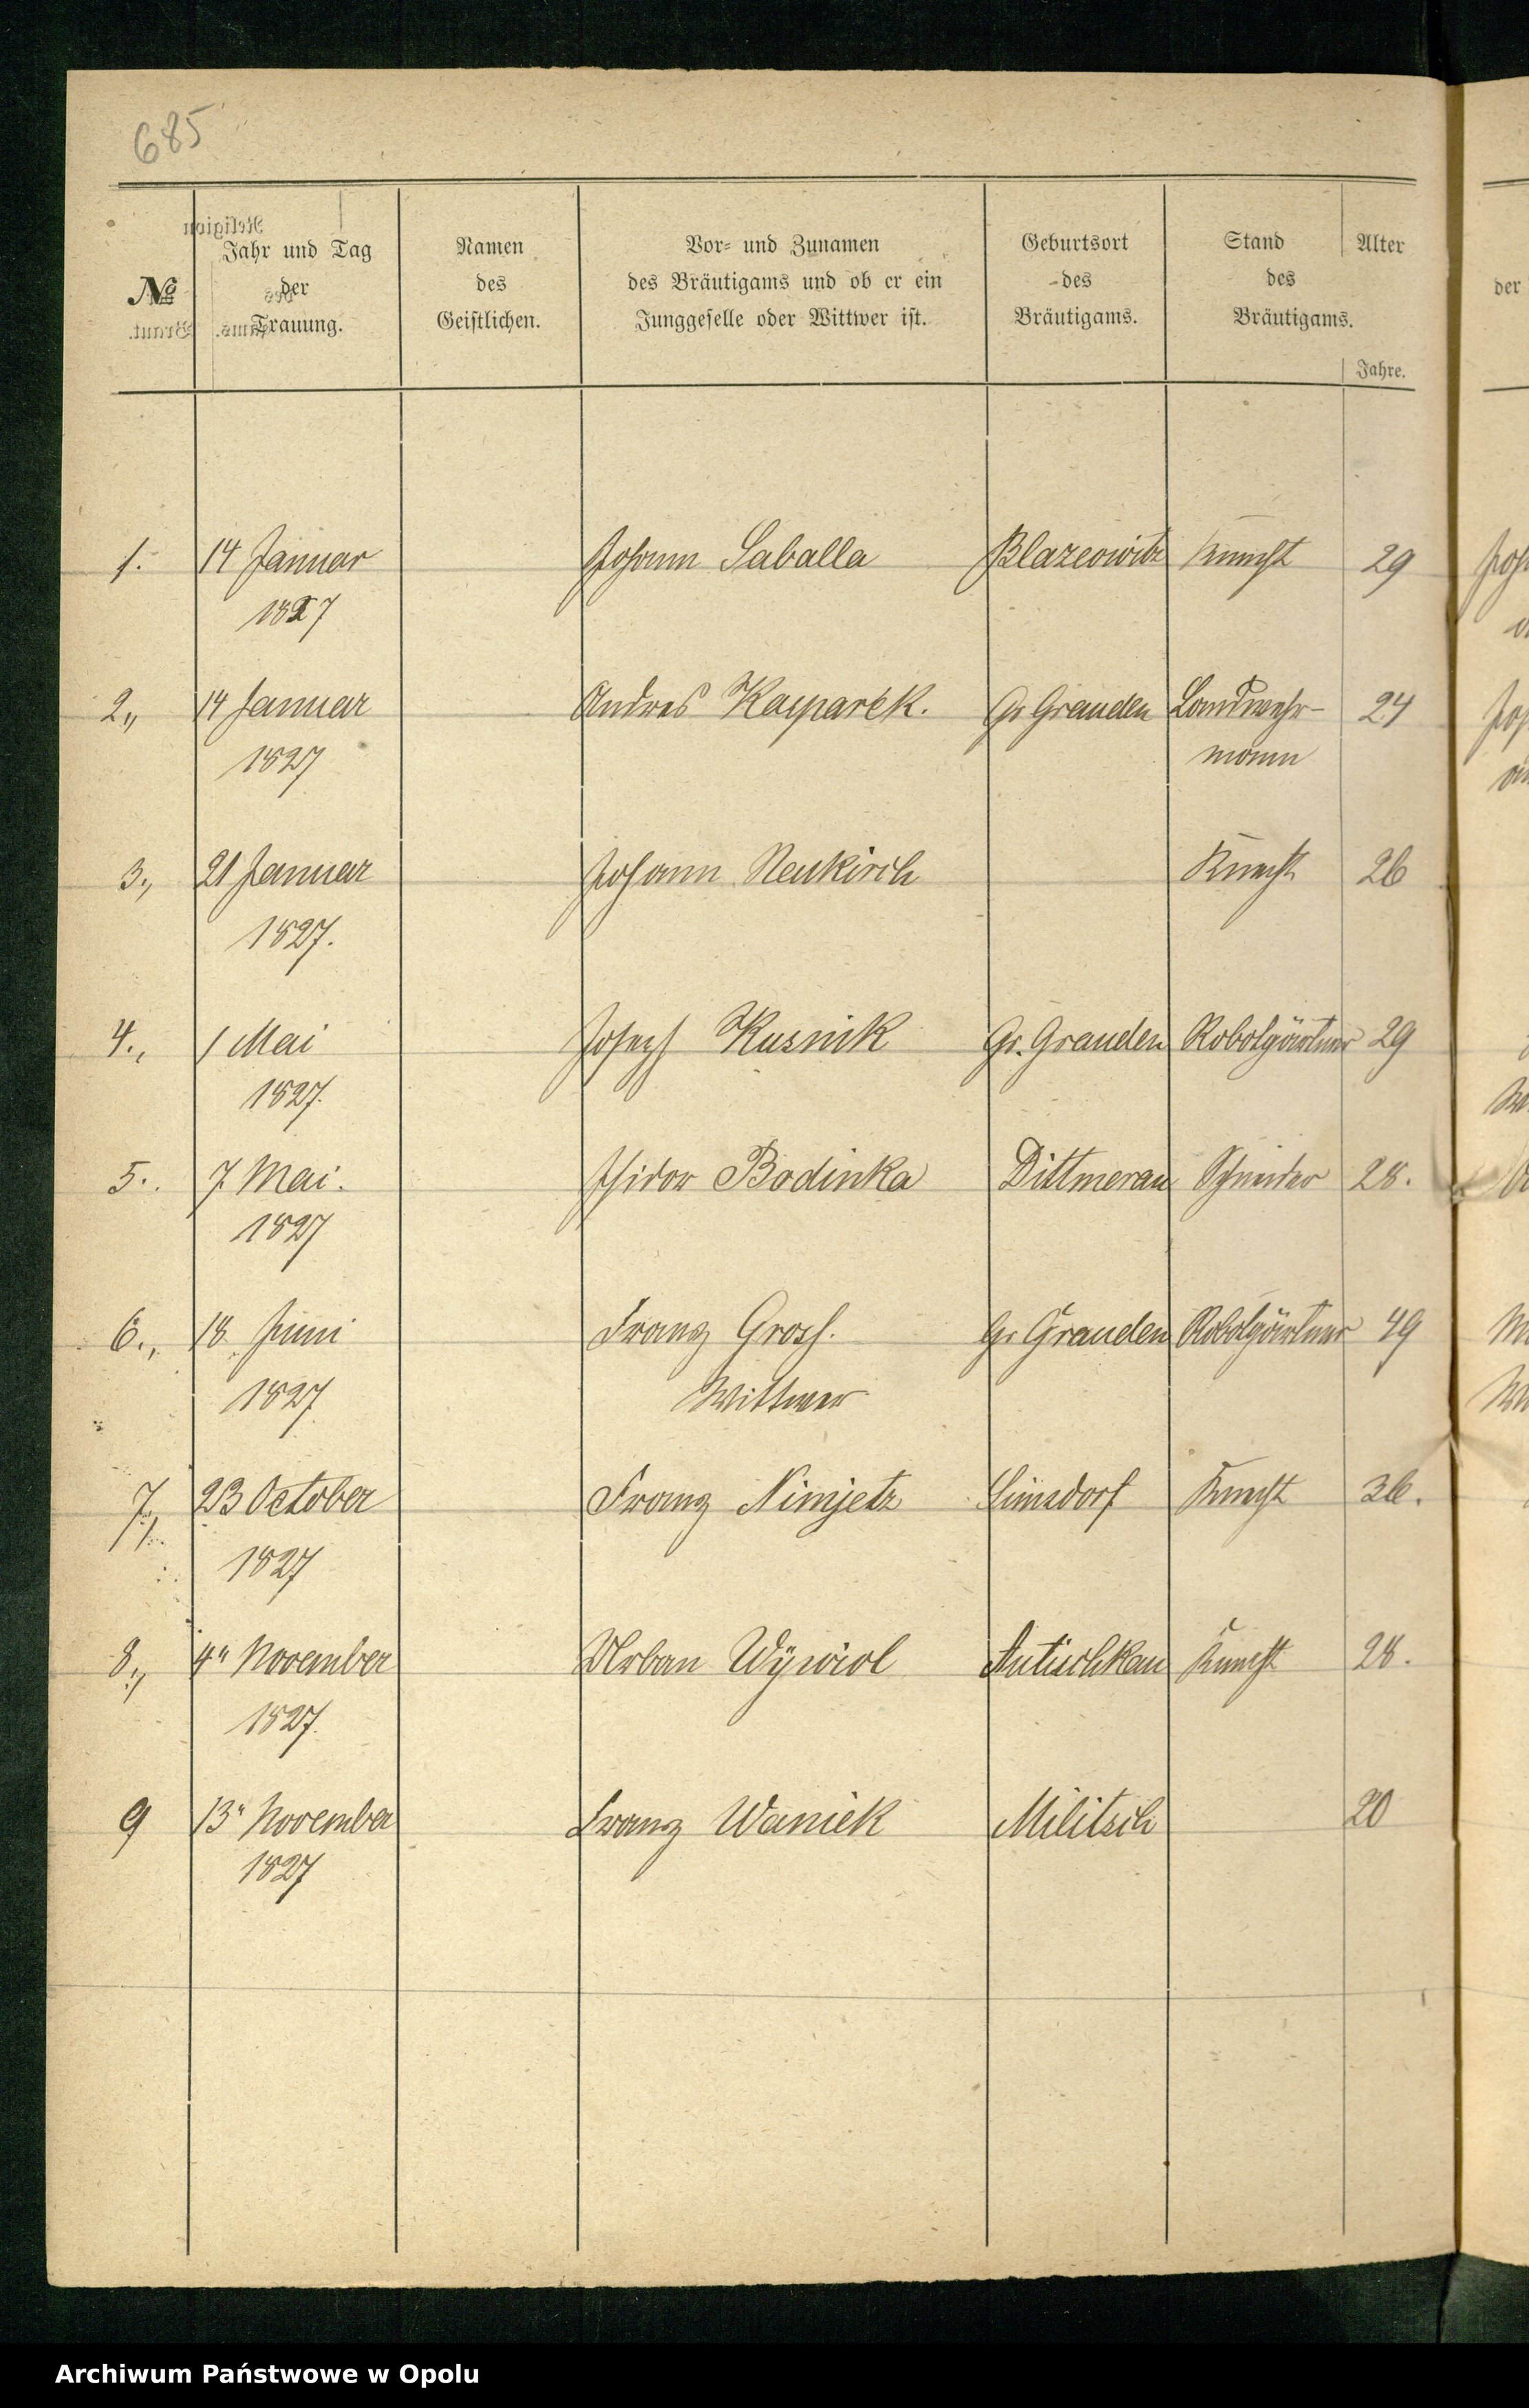 685
№
Jahr und Tag
der
Trauung.
Namen
des
Geistlichen.
Vor- und Zunamen
des Bräutigams und ob er ein
Junggeselle oder Wittwer ist.
Geburtsort
des
Bräutigams.
Stand
des
Bräutigams.
Alter
Jahre.
der
1. 14 Januar Johann Saballa Blazeowitz Knecht 29
1827
2., 14 Januar Andreas Kasparek. Gr Grauden Landwehr- 24
1827 mann
3., 21 Januar Johann Neukirch Knecht 26
1827.
4., 1 Mai Joseph Kusnik Gr. Grauden Robotgärtner 29
1827.
5.. 7. Mai. Isidor Bodinka Dittmerau Schneider 28.
1827
6., 18 Juni Franz Gross. Gr Grauden Robotgärtner 49
1827 Wittwer
7., 23 October Franz Nimjetz Simsdorf Knecht 36.
1827
8., 4" November Urban Wÿwiol Autischkau Knecht 28.
1827.
9 13" November Franz Waniek Militsch 20
1827
Archiwum Państwowe w Opolu